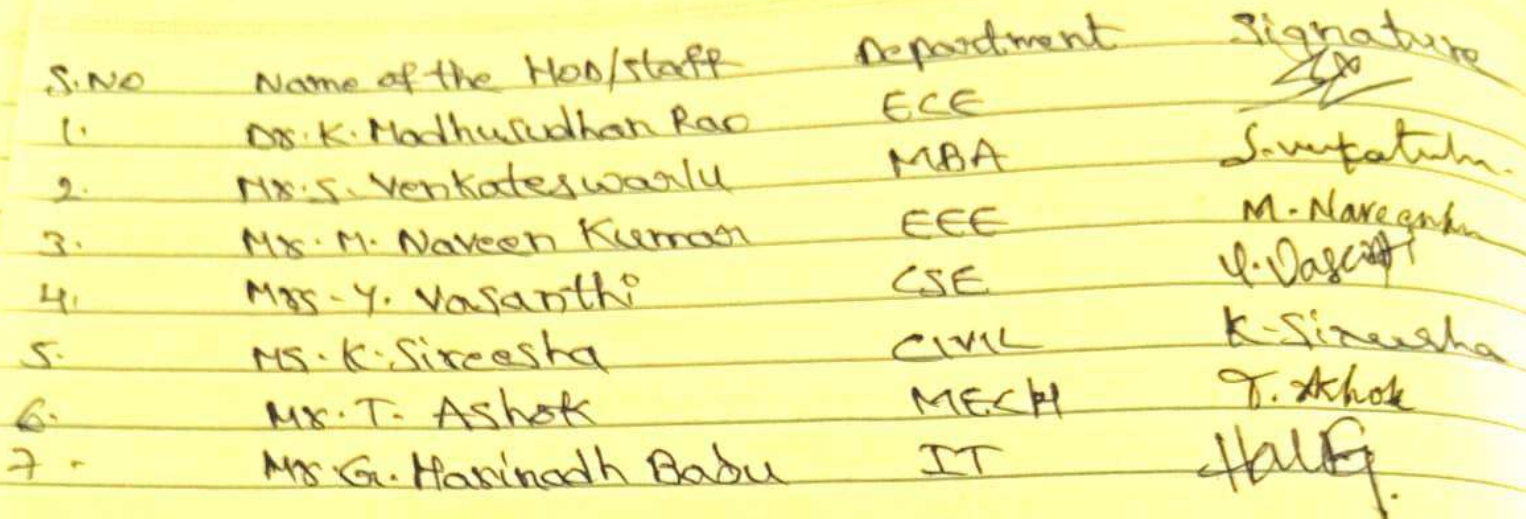 S.NO Name of the HOD/staff Department Signature
1. Dr. K. Madhusudhan Rao ECE
2. Mr. S. Venkateswarlu MBA
3. Mr. M. Naveen Kumar EEE M. Naveenkm
4. Mrs. Y. Vasanthi CSE Y. Vasanthi
5. Ms. K. Sireesha CIVIL K. Sireesha
6. Mr. T. Ashok MECH T. Ashok
7. Mr G. Harinadh Babu IT